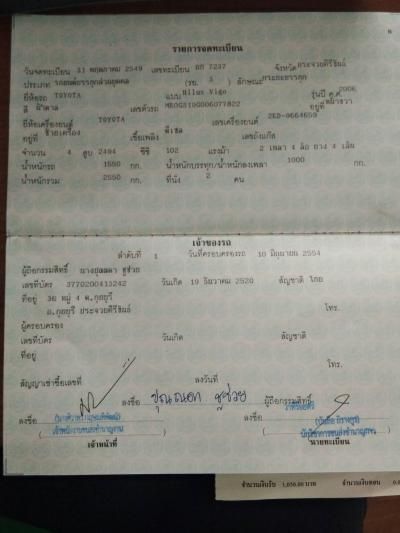 รายการจดทะเบียน
วันจดทะเบียน 31 พฤษภาคม 2549 เลขทะเบียน 7237 จังหวัด ประจวบคีรีขันธ์
ประเภท รถยนต์บรรทุกส่วนบุคคล (รย. 3 ) ลักษณะ กระบะบรรทุก
ยี่ห้อรถ TOYOTA แบบ Hilux Vigo รุ่นปี ค.ศ. 2006
สี เลขตัวรถ MR0GS19G006077822 อยู่ที่
ยี่ห้อเครื่องยนต์ TOYOTA เลขเครื่องยนต์ 2KD-9664659
อยู่ที่ ซ้ายเครื่อง เชื้อเพลิง ดีเซล เลขถังแก๊ส
จำนวน 4 สูบ 2494 ซีซี 102 แรงม้า 2 เพลา 4 ล้อ ยาง 4 เส้น
น้ำหนักรถ 1550 กก. น้ำหนักบรรทุก/น้ำหนักลงเพลา 1000 กก.
น้ำหนักรวม 2550 กก. ที่นั่ง 2 คน
เจ้าของรถ
ลำดับที่ 1 วันที่ครอบครองรถ 10 มิถุนายน 2554
ผู้ถือกรรมสิทธิ์ ชูช่วย
เลขที่บัตร 3770200413242 วันเกิด 19 ธันวาคม 2520 สัญชาติ ไทย
ที่อยู่ 36 หมู่ 4 ต.กุยบุรี
อ.กุยบุรี ประจวบคีรีขันธ์ โทร.
ผู้ครอบครอง
เลขที่บัตร วันเกิด สัญชาติ
ที่อยู่
โทร.
สัญญาเช่าซื้อเลขที่ ลงวันที่
ลงชื่อ ชูช่วย ผู้ถือกรรมสิทธิ์
ลงชื่อ ลงชื่อ
เจ้าพนักงานขนส่งชำนาญงาน
นักวิชาการขนส่งชำนาญการ
เจ้าหน้าที่ นายทะเบียน
จำนวนเงินรับ 1,050.00 บาท จำนวนเงินทอน